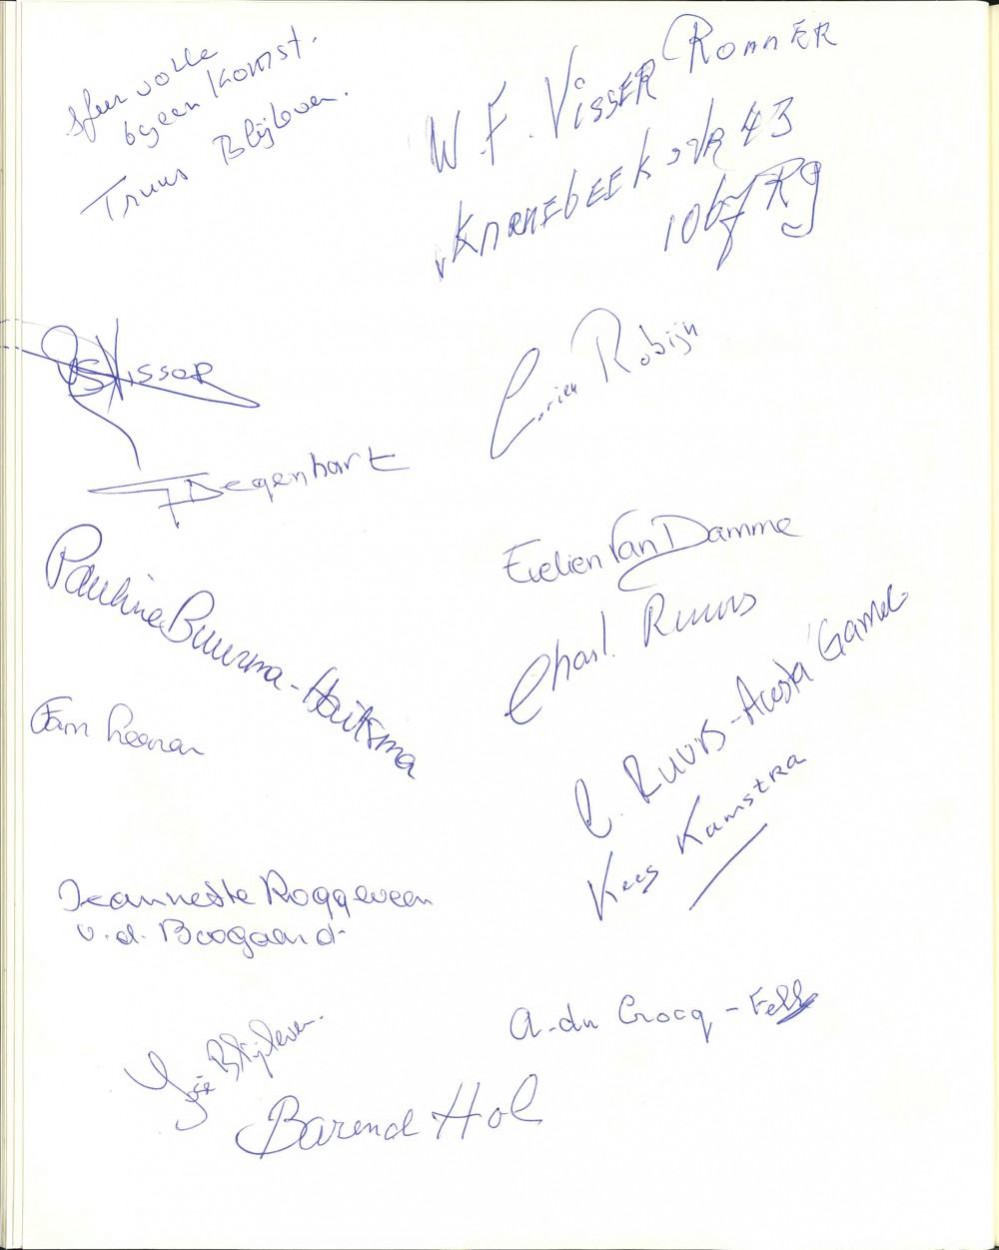 Sfeervolle
byeenkomst.
Truus Blijleven.
W.F. Visser Romner
v Karnebeekstr 43
1067 Rg
Visser
Degenhart
Robijn
Pauline Buurma-Haitsma
Evelien Van Damme
Charl. Ruurs
Fam
C. Ruurs-Acosta Gamel
Kees Kamstra
Jeannette Roggeveen
v.d. Boogaard
A. du Crocq - Fels
José Blijleven.
Barend Hol